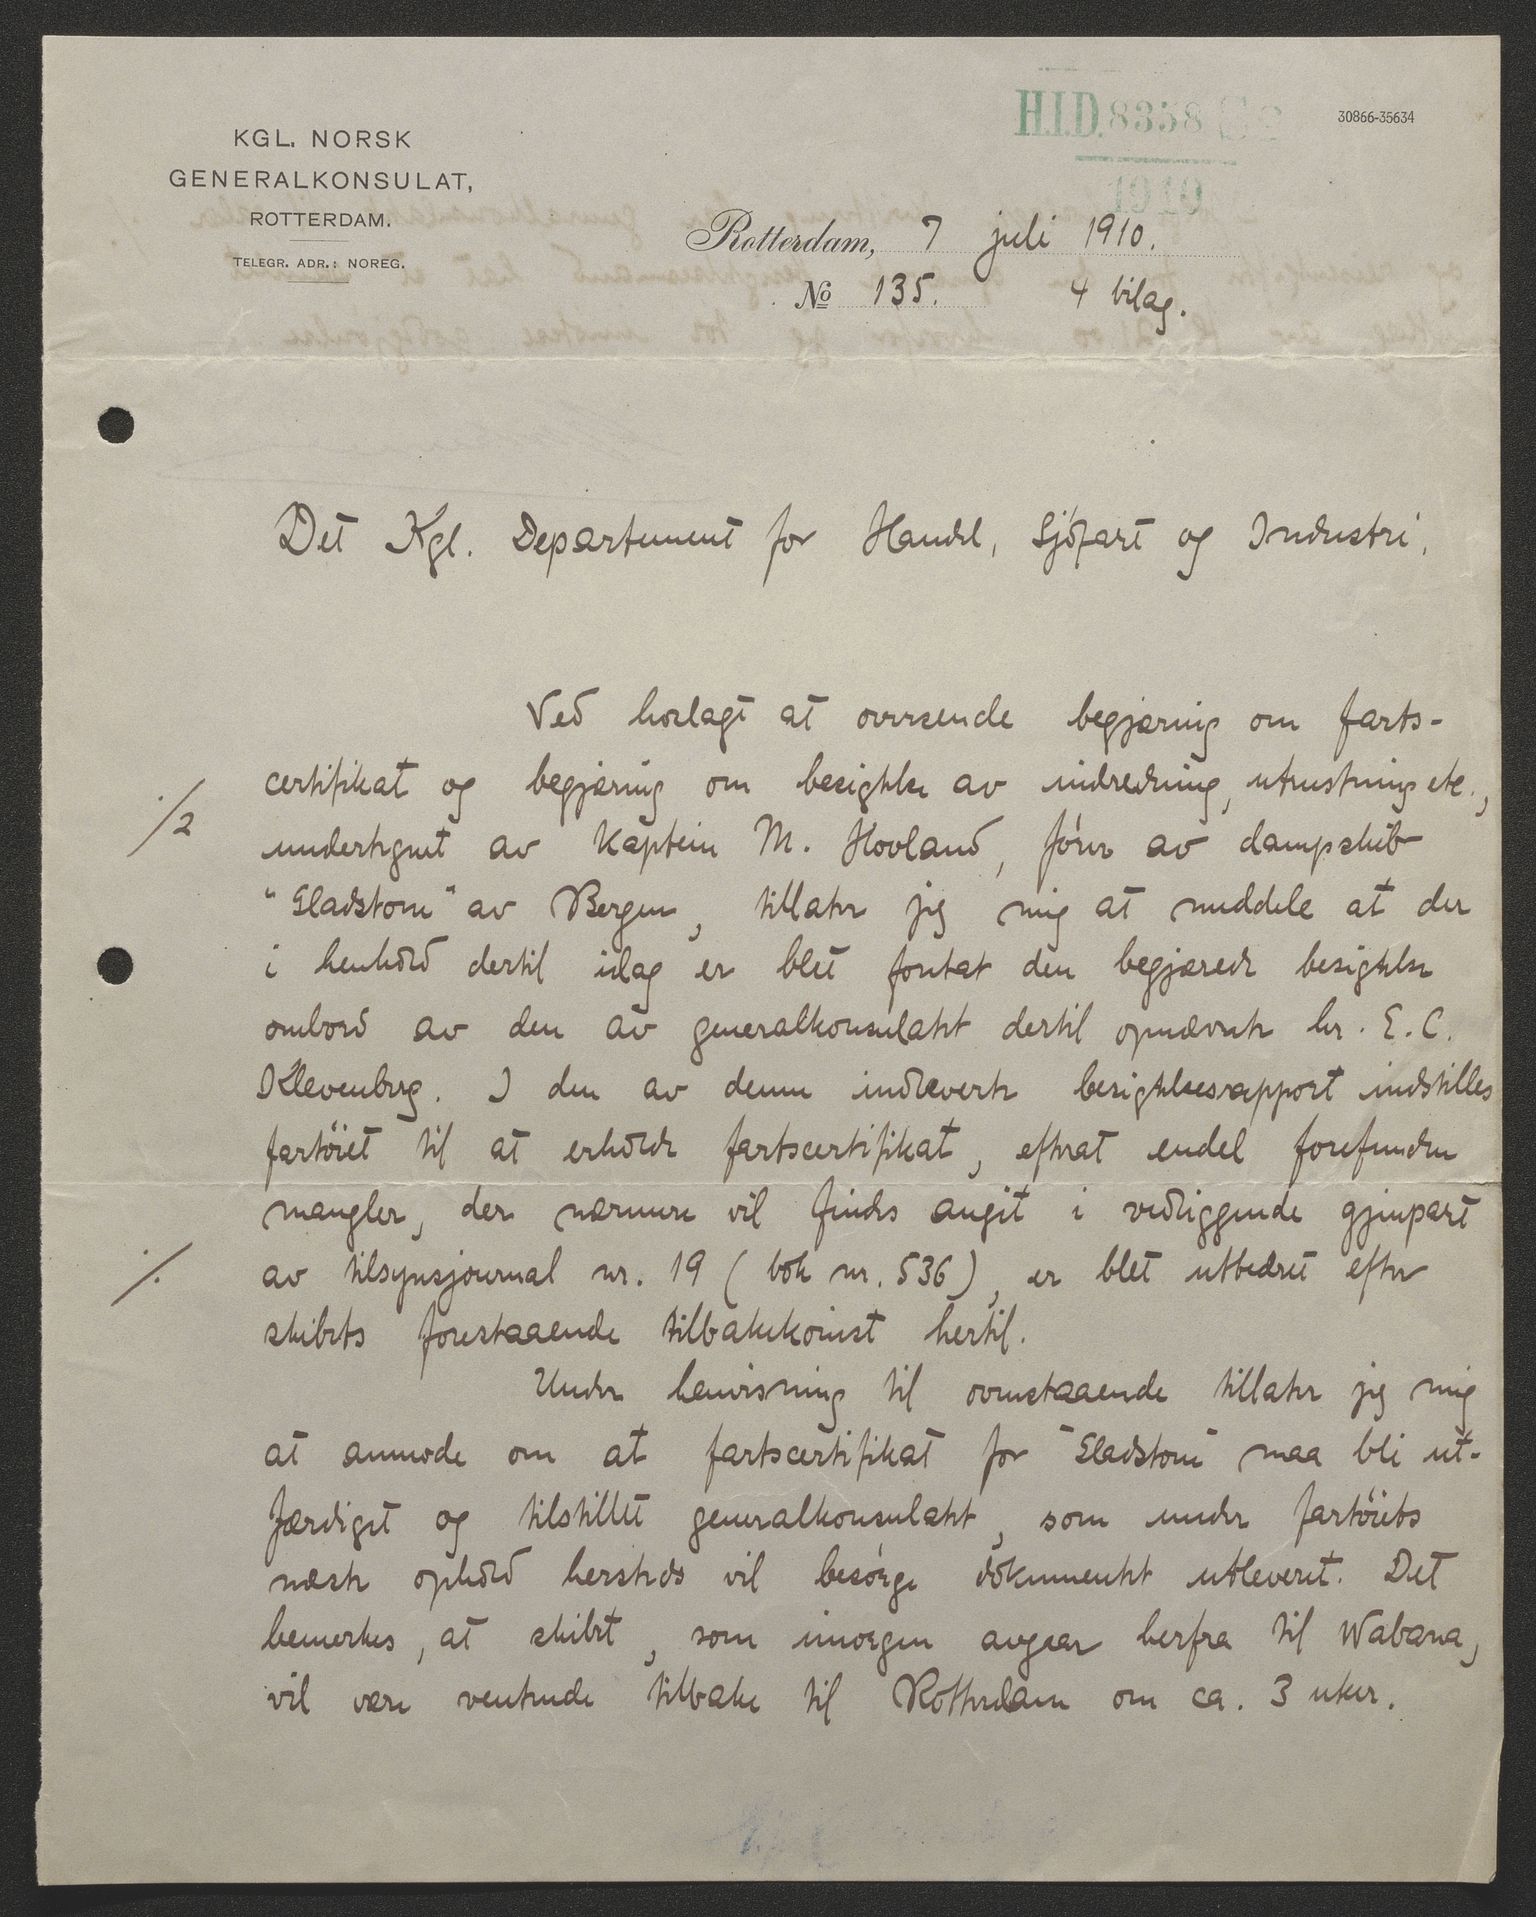 H.I.D. 8358 S2
1910
30866-35634
KGL. NORSK
GENERALKONSULAT,
ROTTERDAM.
TELEGR. ADR.: NOREG.
Rotterdam, 7 juli 1910.
No 135. 4 bilag.
Det Kgl. Departement for Handel, Sjöfart og Industri.
Ved hoslagt at oversende begjæring om farts-
certifikat og begjæring om besigtelse av indredning, utrustning etc.,
./2
undertegnet av kaptein M. Hovland, förer av dampskib
"Gladstone" av Bergen, tillater jeg mig at meddele at der
i henhold dertil idag er blet foretat den begjærede besigtelse
ombord av den av generalkonsulatet dertil opnævnte hr. E. C.
Klevenberg. I den av denne indleverte besigtelsesrapport indstilles
fartöiet til at erholde fartscertifikat, efterat endel forefundne
mangler, der nærmere vil findes angit i vedliggende gjenpart
./.
av tilsynsjournal nr. 19 (bok nr. 536), er blet utbedret efter
skibets forestaaende tilbakekomst hertil.
Under henvisning til ovenstaaende tillater jeg mig
at anmode om at fartscertifikat for "Gladstone" maa bli ut-
færdiget og tilstillet generalkonsulatet, som under fartöiets
næste ophold hersteds vil besörge dokumentet utleveret. Det
bemerkes, at skibet, som imorgen avgaar herfra til Wabana,
vil være ventende tilbake til Rotterdam om ca. 3 uker.